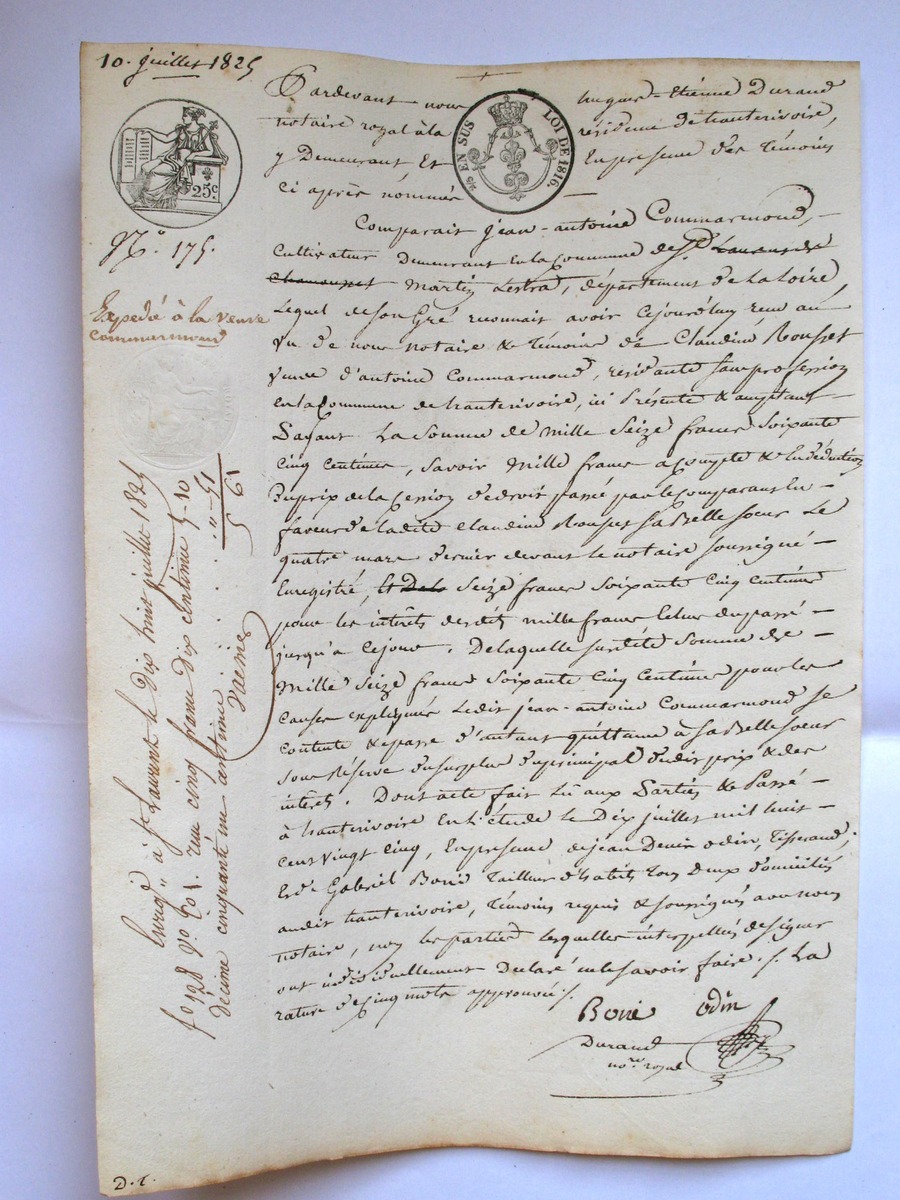 10. juillet 1825
25c
EN SUS
LOI DE 1816.
N.o 175.
Expedié à la veuve
Commarmond
Pardevant nous hugues-Etienne Durand
notaire royal à la résidence de hauterivoire,
y Demeurant Et En presence des témoins
ci après nommés
Comparait jean-antoine Commarmond,
Cultivateur Demeurant en la Commune de St Laurent de
Chamousset Martin Lestra, département de La Loire
Lequel de son Gré reconnait avoir cejourd'huy recu au
vu de nous notaire & témoins de Claudine Rousset
veuve d'antoine Commarmond, residante sans profession
en la Commune de hauterivoire, ici Présente & acceptant
payant La Somme de Mille Seize francs Soixante
Cinq Centimes, savoir Mille francs a compte & En déduction
Du prix de la Cession de droit passé par le Comparant En
faveur de ladite Claudine Rousset sa Belle soeur Le
quatre mars dernier devant le notaire soussigné
Enregistré, Et De la Seize francs Soixante Cinq Centimes
pour les intérêts desdits mille francs
jusqu'à Ce jour. De laquelle susdite Somme de
Mille Seize francs Soixante Cinq Centimes pour les
Causes expliquées Ledit jean-antoine Commarmond se
Contente & passe d'autant quittance à Sa Belle Soeur
Sous Réserve du surplus du principal dudit prix & des
intérêts. Dont acte fait Lû aux Parties & Passé
à hauterivoire En L'étude le Dix juillet mil huit
Cent vingt Cinq, En presence de jean Denis odin, tisserand,
Et de Gabriel Boné tailleur d'habits tous Deux domiciliés
audit hauterivoire, témoins requis & soussignés avec nous
notaire, non les parties lesquelles interpellées de signer
ont individuellement Declaré ne le savoir faire ./. La
rature de Cinq mots approuvée ./.
Boné odin
Durand
nore royal
Enregé à St Laurent le dix huit juillet 1825
fo 128 Vo. Co 1. recu cinq francs dix centimes 5-10
decime cinquante un centimes " 51
5 61
D. C.